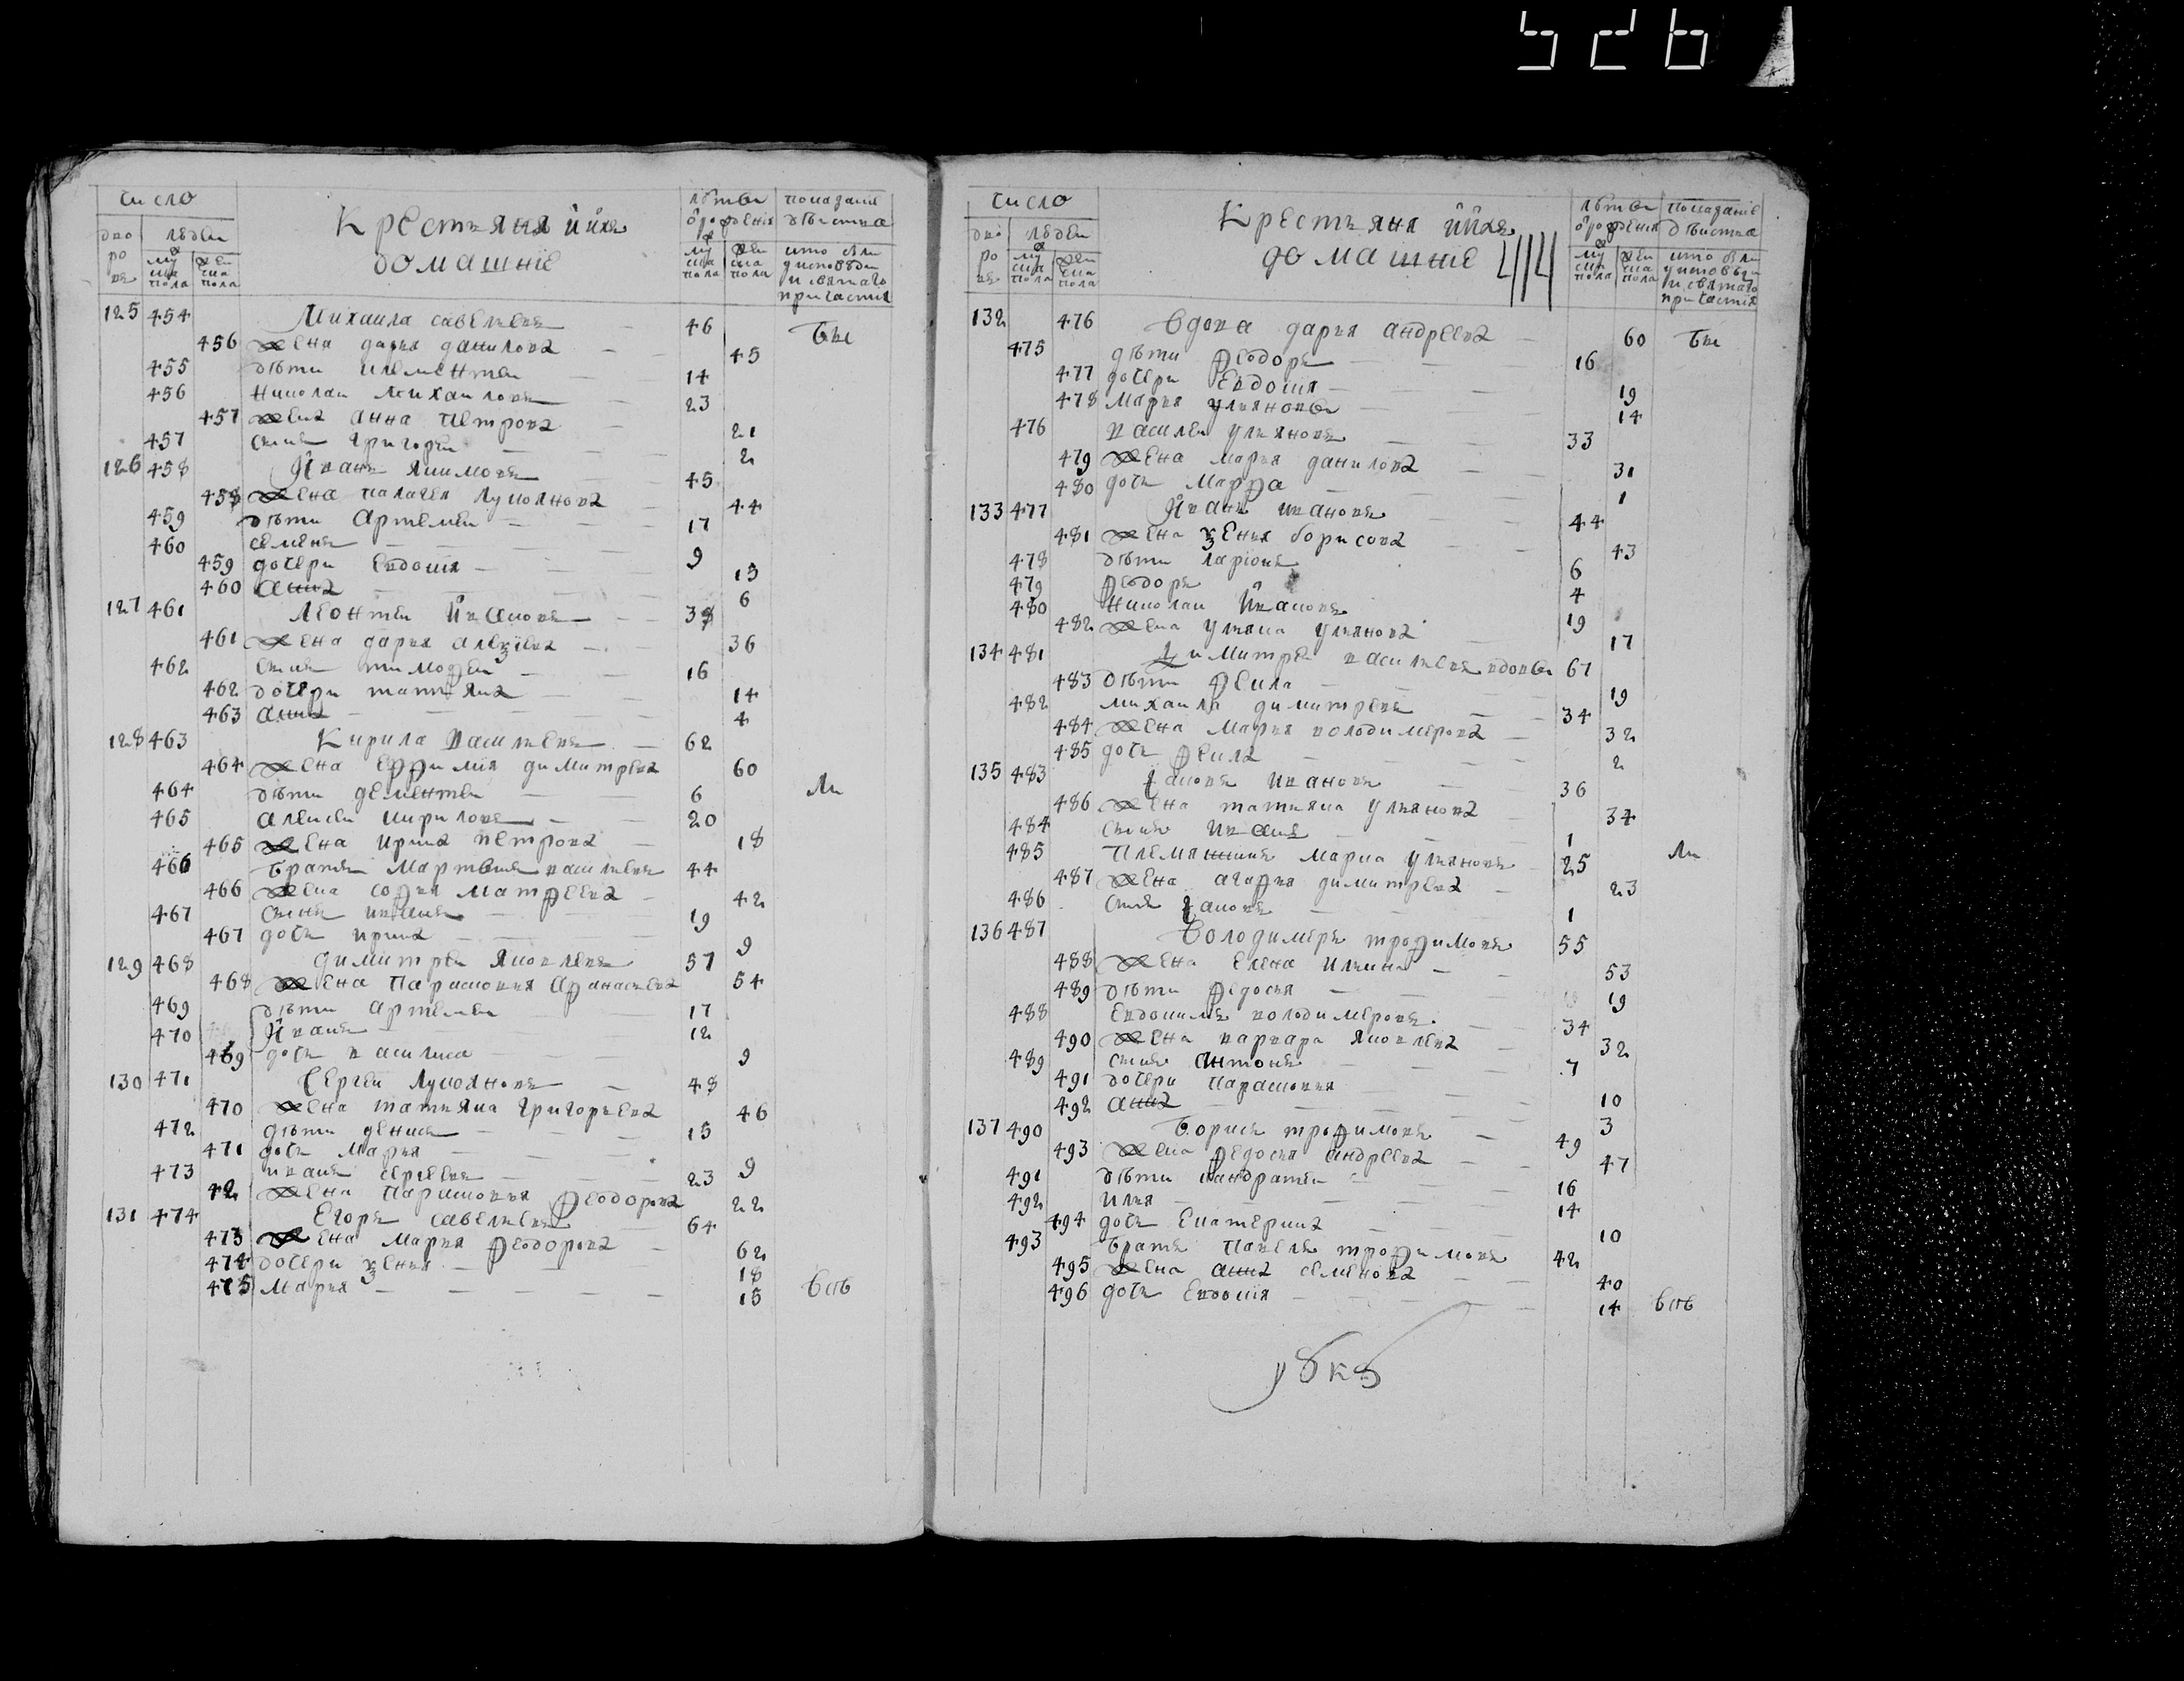 526
число
дворовъ
людеи
мужска пола
женска пола
Крестьяня ихъ
домашніе
лѣтъ от рожденія
мужска пола
женска пола
показаніе дѣиства
кто былъ у исповѣди и святаго причастия
125 454 Михаила савельевъ 46 бы
456 жена дарья данилова 45
455 дѣти клементеи 14
456 николаи михаиловъ 23
457 жена анна петрова 21
457 сынъ григореи 2
126 458 Иванъ якимовъ 45
458 жена палагея лукоянова 44
459 дѣти артемеи 17
460 семенъ 9
459 дочери евдокия 13
460 анна 6
127 461 Леонтеи Ивановъ 38
461 жена дарья алеѯіева 36
462 сынъ тимоѳеи 16
462 дочери татьяна 14
463 анна 4
128 463 Кирила васильевъ 62
464 жена еѳѳимія димитрева 60
464 дѣти дементеи 6 ли
465 алексеи кириловъ 20
465 жена ирина петрова 18
466 братъ мартынъ васильевъ 44
466 жена соѳья матѳеева 42
467 сынъ иванъ 19
467 дочь ирина 9
129 468 димитреи яковлевъ 57
468 жена парасковья аѳанасьева 54
469 дѣти артемеи 17
470 Иванъ 12
469 дочь василиса 9
130 471 Сергеи лукояновъ 48
470 жена татьяна григорьева 46
472 дѣти денисъ 15
471 дочь марья 9
473 иванъ сергеевъ 23
42 жена парасковья ѳеодорова 22
131 474 Егоръ савельевъ 64
473 жена марья ѳеодорова 62
474 дочери ѯенья 18
475 марья 15 всѣ
число
дворовъ
людеи
мужска пола
женска пола
Крестьяня ихъ
домашніе
414
лѣтъ от рожденія
мужска пола
женска пола
показаніе дѣиства
кто былъ у исповѣди и святаго причастия
132 476 Вдова дарья андреева 60 бы
475 дѣти ѳеодоръ 16
477 дочери евдокия 19
478 марья ульяновы 14
476 василеи ульяновъ 33
479 жена марья данилова 31
480 дочь марѳа 1
133 477 Иванъ ивановъ 44
481 жена ѯенья борисова 43
478 дѣти ларіонъ 6
479 ѳеодоръ 4
480 николаи Ивановъ 19
482 жена ульяна ульянова 17
134 481 Димитреи васильевъ вдовъ 67
483 дѣти ѳекла 19
482 михаила димитревъ 34
484 жена марья володимерова 32
485 дочь ѳекла 2
135 483 Яковъ ивановъ 36
486 жена татьяна ульянова 34
484 сынъ иванъ 1
485 племянникъ марка ульяновъ 25 ли
487 жена агаѳья димитрева 23
486 сынъ яковъ 1
136 487 Володимеръ троѳимовъ 55
488 жена елена ильина 53
489 дѣти ѳедосья 19
488 евдокимъ володимеровъ 34
490 жена варвара яковлева 32
489 сынъ антонъ 7
491 дочери парасковья 10
492 анна 3
137 490 Борисъ троѳимовъ 49
493 жена ѳедосья андреева 47
491 дѣти кандратеи 16
492 илья 14
494 дочь екатерина 10
493 братъ павелъ троѳимовъ 42
495 жена анна семенова 40
496 дочь евдокия 14 всѣ